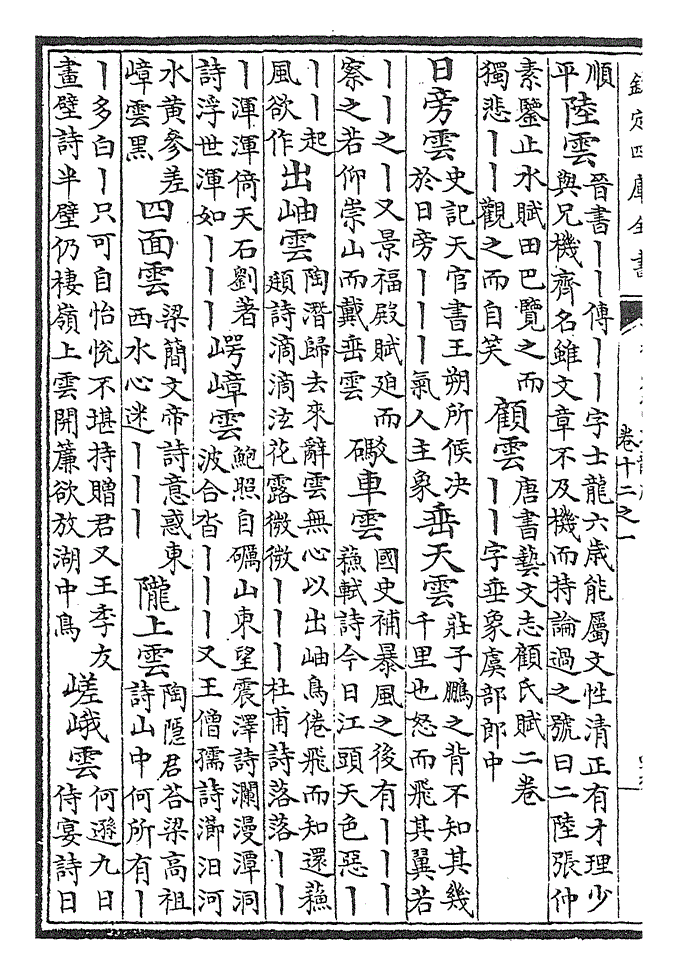 欽定四庫全書
卷十二之一
順
平
陸雲
晉書丨丨傳丨丨字士龍六歳能屬文性清正有才理少
與兄機齊名雖文章不及機而持論過之號曰二陸張仲
素鑒止水賦田巴覽之而
獨悲丨丨觀之而自笑
顧雲
唐書藝文志顧氏賦二卷
丨丨字垂象虞部郎中
日旁雲
史記天官書王朔所候决
於日旁丨丨丨氣人主象
垂天雲
莊子鵬之背不知其幾
千里也怒而飛其翼若
丨丨之丨又景福殿賦廹而
察之若仰崇山而戴垂雲
礮車雲
國史補暴風之後有丨丨丨
蘓軾詩今日江頭天色惡丨
丨丨起
風欲作
出岫雲
陶潛歸去來辭雲無心以出岫鳥倦飛而知還蘓
頲詩滴滴泫花露微微丨丨丨杜甫詩落落丨丨
丨渾渾倚天石劉著
詩浮世渾如丨丨丨
崿嶂雲
鮑照自礪山東望震澤詩瀾漫潭洞
波合沓丨丨丨又王僧孺詩汨河
水黄參差
嶂雲黒
四面雲
梁簡文帝詩意惑東
西水心迷丨丨丨
隴上雲
陶隱君荅梁高祖
詩山中何所有丨
丨多白丨只可自怡悅不堪持贈君又王季友
畫壁詩半壁仍棲嶺上雲開簾欲放湖中鳥
嵯峨雲
何遜九日
侍宴詩日